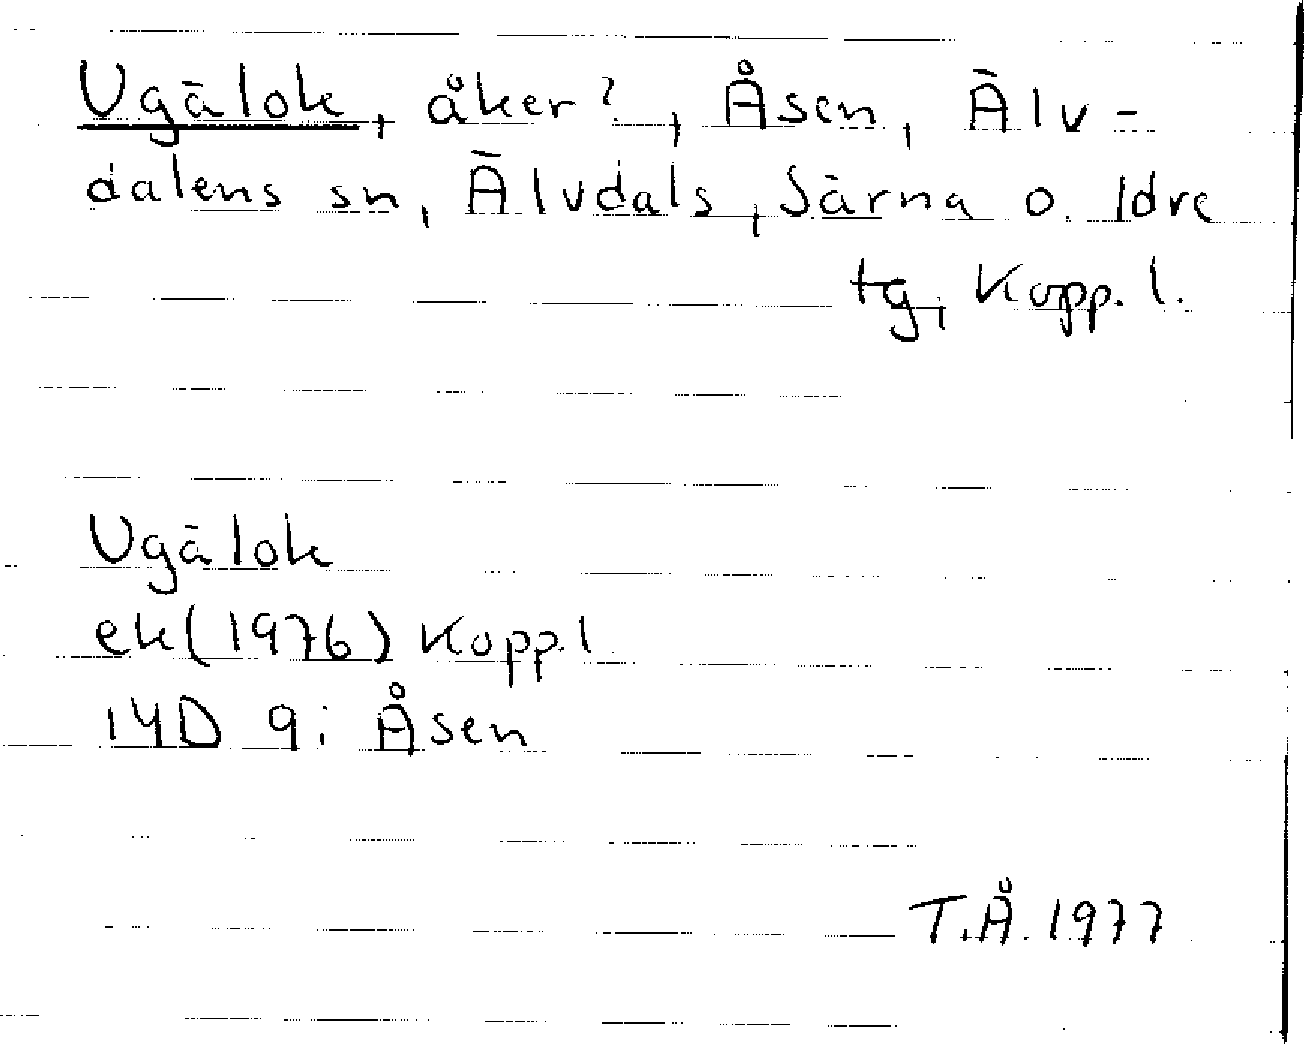 Ugälok, åker?, Åsen, Älv-
dalens sn, Älvdals, Särna o. Idre
tg, Kopp. l.
Ugälok
ek (1976) Kopp. l
14D 9i Åsen
T.Å. 1977